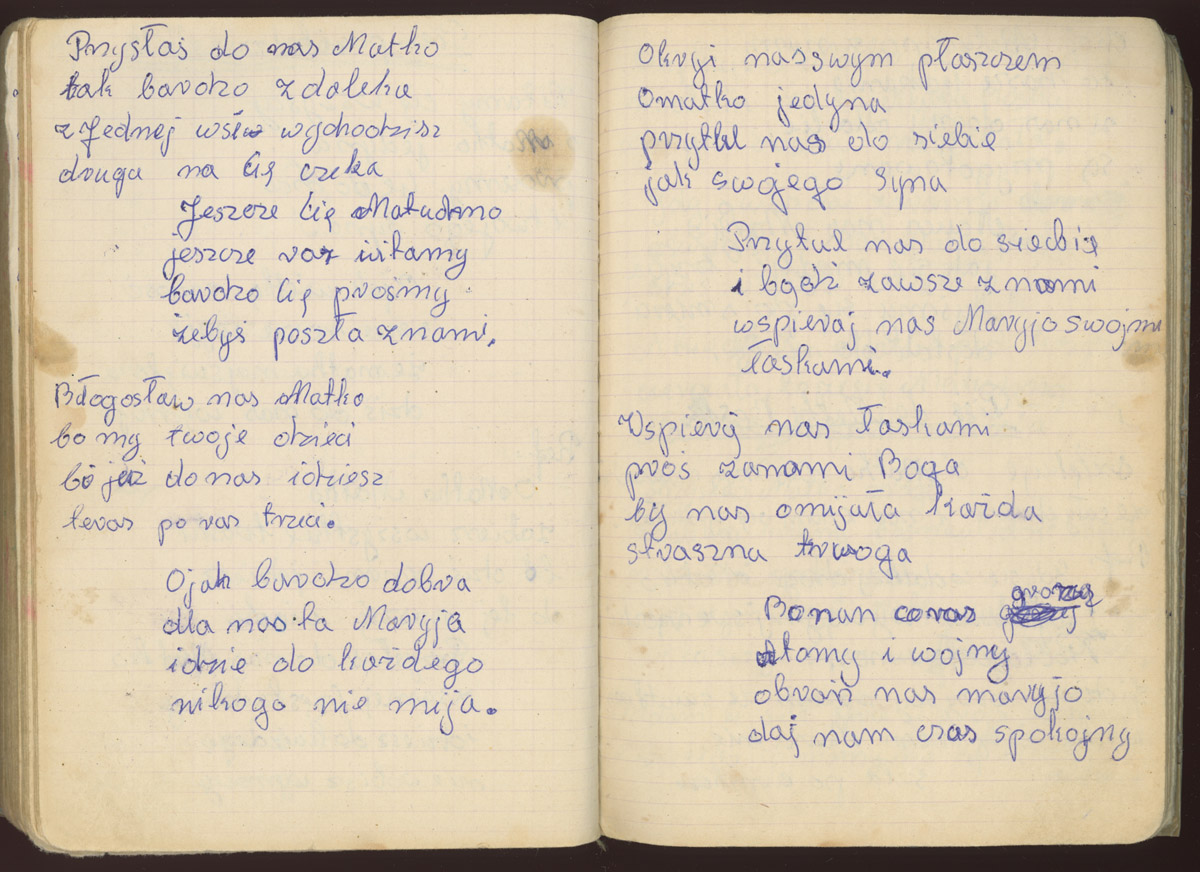 Przysłaś do nas Matko
tak bardzo zdaleka
z Jednej wsiw wychodzisz
druga na Cię czeka
Jeszcze Cię Matuchno
jeszcze raz witamy
bardzo Cię prośmy
żebyś poszła znami.
Błogosław nas Matko
bo my twoje dzieci
bo już do nas idziesz
teras po ras trzeci.
Ojak bardzo dobra
dla nas ta Maryja
idzie do każdego
nikogo nie mija.
Okryj nasswym płaszczem
Omatko jedyna
przytul nas do siebie
jak swojego Syna
Przytul nas do siecbie
i bądź zawsze znami
wspieraj nas Maryjo swojmi
łaskami.
Wspieraj nas łaskami
proś zanami Boga
by nas omijała każda
straszna trwoga
Bonan coras grorzą
Atomy i wojny
obroń nas maryjo
daj nam czas spokojny